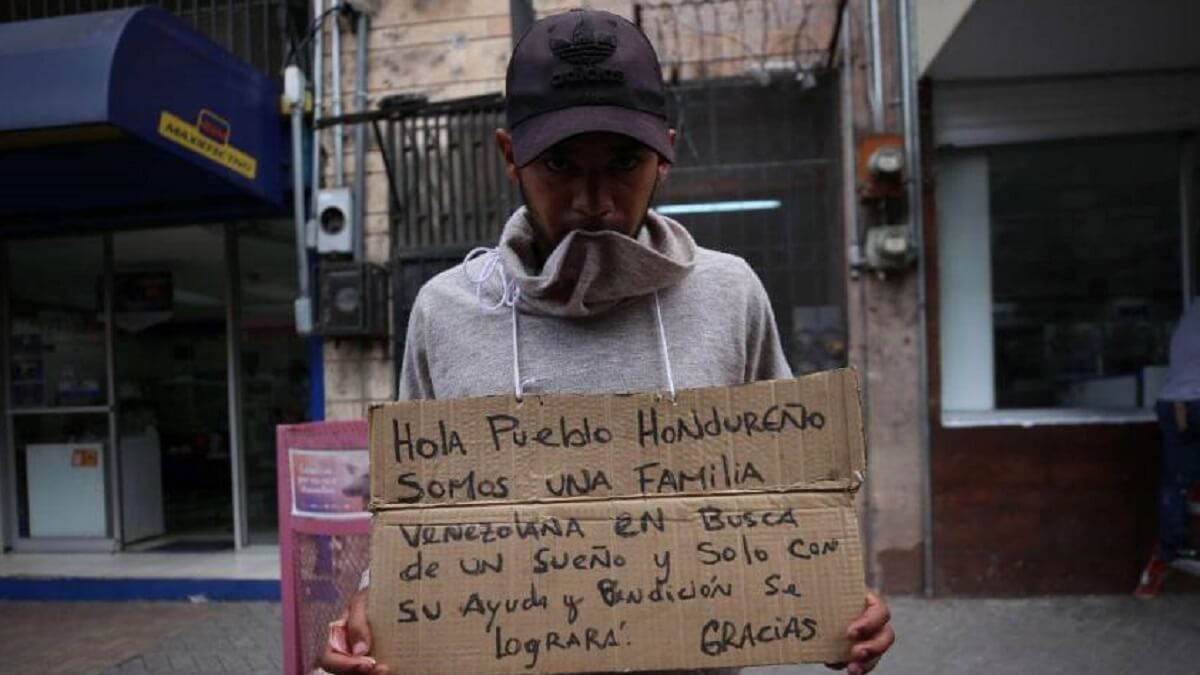 adidas
MAXIEFECTIVO
Hola Pueblo HONDUREÑO
Somos UNA FAMILIA
VENEZOLANA en BUSCA
de UN SUEÑO y Solo CON
SU Ayuda y BenDICIÓN Se
logrará! GRACIAS